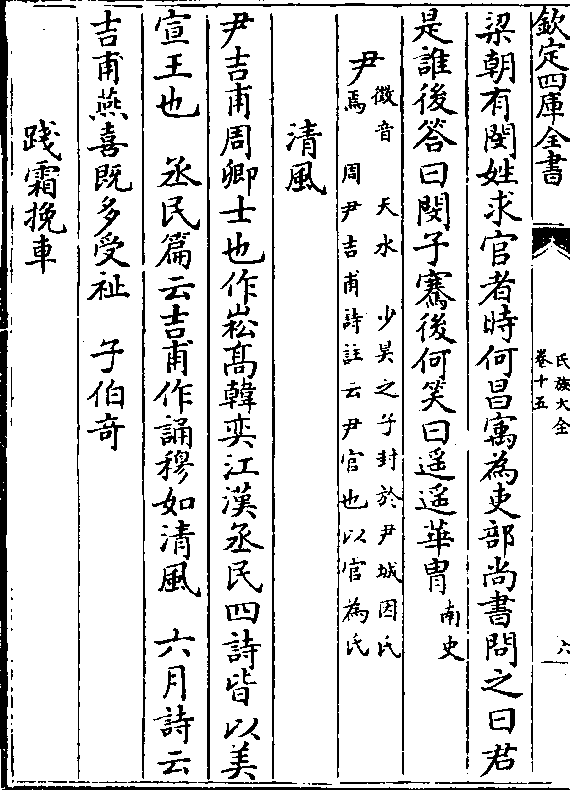 欽定四庫全書
氏族大全
卷十五
六
梁朝有閔姓求官者時何昌寓為吏部尚書問之曰君
是誰後答曰閔子騫後何笑曰遥遥華胄南史
尹徵音 天水 少昊之子封於尹城因氏
焉 周尹吉甫詩註云尹官也以官為氏
清風
尹吉甫周卿士也作崧髙韓奕江漢烝民四詩皆以美
宣王也 烝民篇云吉甫作誦穆如清風 六月詩云
吉甫燕喜既多受祉 子伯奇
踐霜挽車